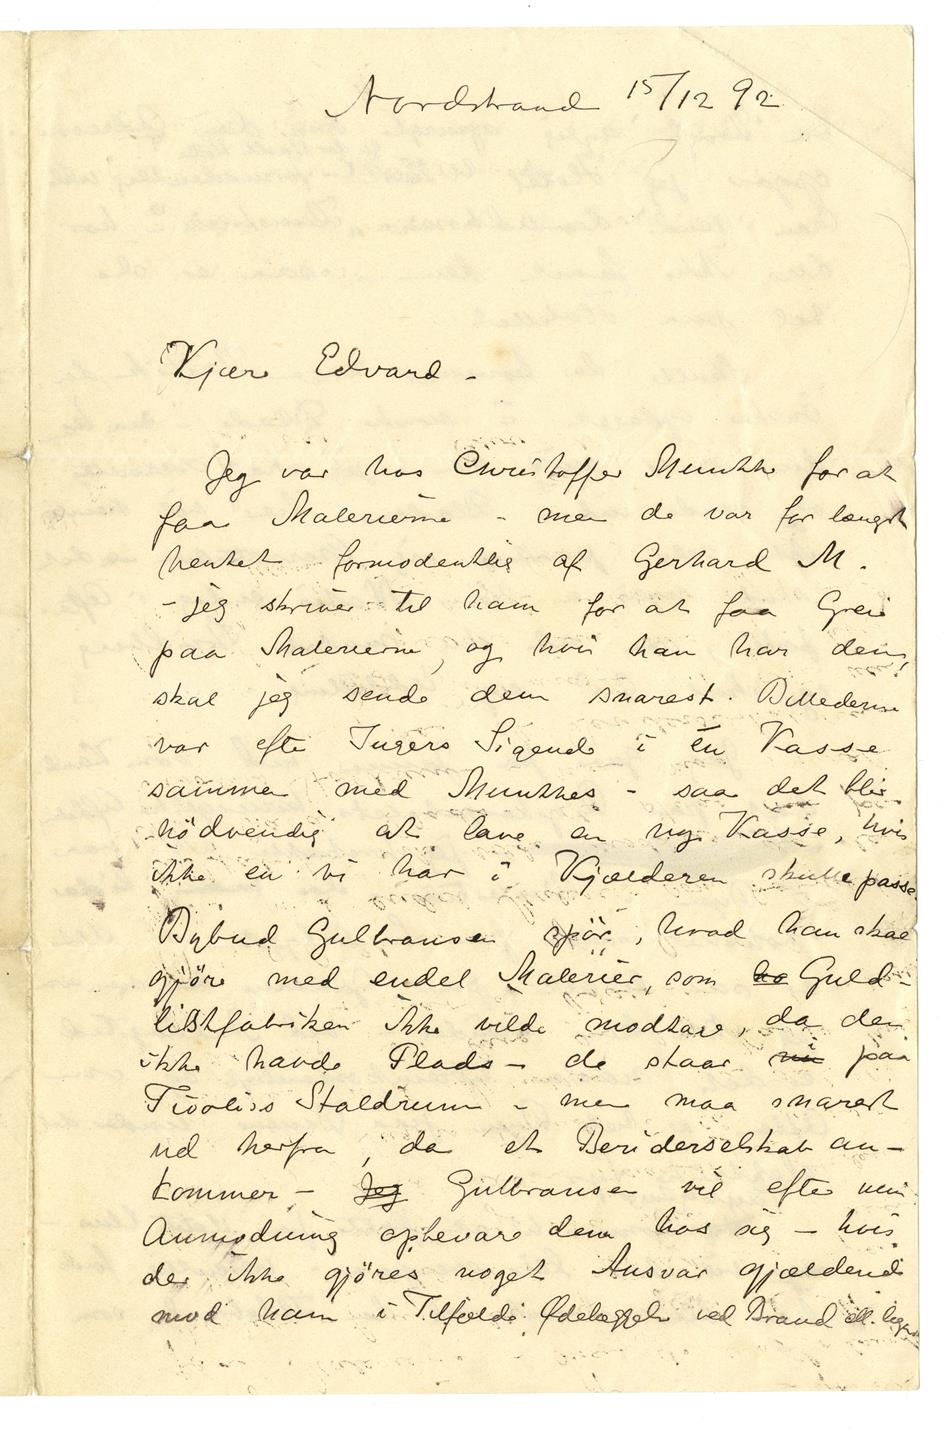 Nordstrand 15/12 92
Kjære Edvard –
Jeg var hos Christoffer Munthe for at
faa Malerierne – men de var for længst
hentet formodentlig af Gerhard M.
– jeg skriver til ham for at faa Greie
paa Malerierne, og hvis han har dem,
skal jeg sende dem snarest. Billederne
var efter Ingers Sigende i én Kasse
sammen med Munthes – saa det blir
nødvendig at lave en ny Kasse, hvis
ikke en vi har i Kjælderen skulle passe.
Bybud Gulbransen spør, hvad han skal
gjöre med endel Malerier, som ha Guld-
listfabriken ikke vilde modtage, da den
ikke havde Plads – de staar nu paa
Tivolis Staldrum – men maa snarest
ud herfra, da et Beriderselskab an-
kommer – Jeg Gulbransen vil efter min
Anmodning opbevare dem hos sig – hvis
der ikke gjöres noget Ansvar gjældende
mod ham i Tilfælde Ødelæggelse ved Brand ell. lign.